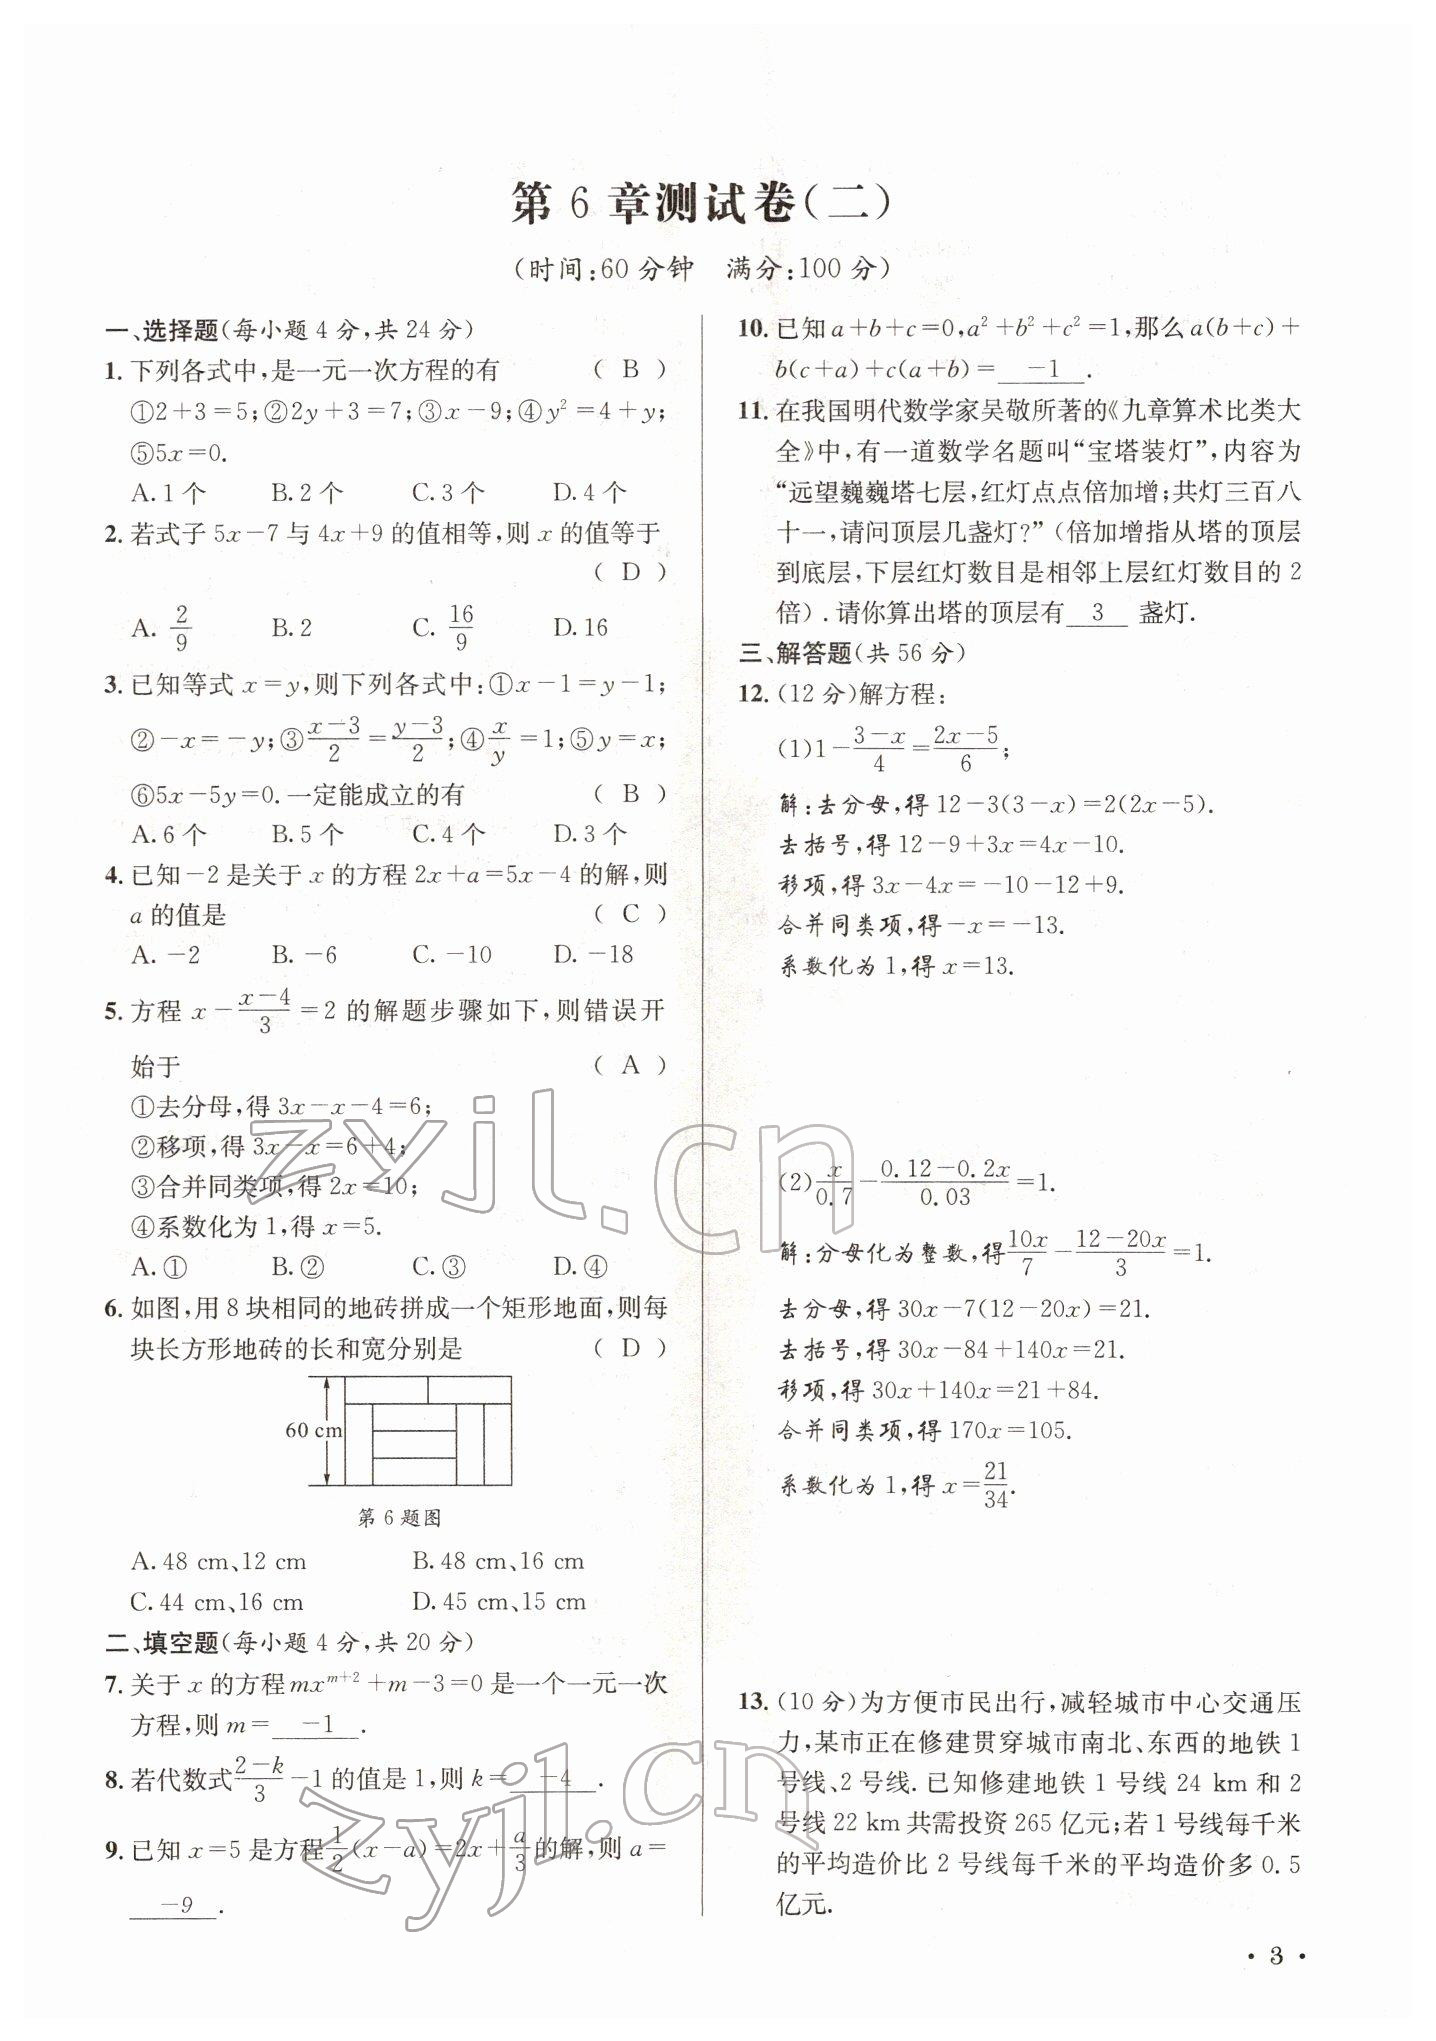 第 6 章测试卷(二)
(时间:60 分钟 满分:100 分)
一、选择题(每小题 4 分,共 24 分)
1. 下列各式中,是一元一次方程的有 ( B )
①2+3=5;②2y+3=7;③x-9;④y²=4+y;
⑤5x=0.
A. 1 个 B. 2 个 C. 3 个 D. 4 个
2. 若式子 5x-7 与 4x+9 的值相等,则 x 的值等于
( D )
A. 2/9 B. 2 C. 16/9 D. 16
3. 已知等式 x=y,则下列各式中:①x-1=y-1;
②-x=-y;③(x-3)/2=(y-3)/2;④x/y=1;⑤y=x;
⑥5x-5y=0. 一定能成立的有 ( B )
A. 6 个 B. 5 个 C. 4 个 D. 3 个
4. 已知-2 是关于 x 的方程 2x+a=5x-4 的解,则
a 的值是 ( C )
A. -2 B. -6 C. -10 D. -18
5. 方程 x-(x-4)/3=2 的解题步骤如下,则错误开
始于 ( A )
①去分母,得 3x-x-4=6;
②移项,得 3x-x=6+4;
③合并同类项,得 2x=10;
④系数化为 1,得 x=5.
A. ① B. ② C. ③ D. ④
6. 如图,用 8 块相同的地砖拼成一个矩形地面,则每
块长方形地砖的长和宽分别是 ( D )
60 cm
第 6 题图
A. 48 cm、12 cm B. 48 cm、16 cm
C. 44 cm、16 cm D. 45 cm、15 cm
二、填空题(每小题 4 分,共 20 分)
7. 关于 x 的方程 mx^(m+2)+m-3=0 是一个一元一次
方程,则 m= -1 .
8. 若代数式 (2-k)/3-1 的值是 1,则 k= -4 .
9. 已知 x=5 是方程 1/2(x-a)=2x+a/3 的解,则 a=
-9 .
10. 已知 a+b+c=0,a²+b²+c²=1,那么 a(b+c)+
b(c+a)+c(a+b)= -1 .
11. 在我国明代数学家吴敬所著的《九章算术比类大
全》中,有一道数学名题叫“宝塔装灯”,内容为
“远望巍巍塔七层,红灯点点倍加增;共灯三百八
十一,请问顶层几盏灯?”(倍加增指从塔的顶层
到底层,下层红灯数目是相邻上层红灯数目的 2
倍). 请你算出塔的顶层有 3 盏灯.
三、解答题(共 56 分)
12. (12 分)解方程:
(1)1-(3-x)/4=(2x-5)/6;
解:去分母,得 12-3(3-x)=2(2x-5).
去括号,得 12-9+3x=4x-10.
移项,得 3x-4x=-10-12+9.
合并同类项,得-x=-13.
系数化为 1,得 x=13.
(2)x/0.7-(0.12-0.2x)/0.03=1.
解:分母化为整数,得 10x/7-(12-20x)/3=1.
去分母,得 30x-7(12-20x)=21.
去括号,得 30x-84+140x=21.
移项,得 30x+140x=21+84.
合并同类项,得 170x=105.
系数化为 1,得 x=21/34.
13. (10 分)为方便市民出行,减轻城市中心交通压
力,某市正在修建贯穿城市南北、东西的地铁 1
号线、2 号线. 已知修建地铁 1 号线 24 km 和 2
号线 22 km 共需投资 265 亿元;若 1 号线每千米
的平均造价比 2 号线每千米的平均造价多 0.5
亿元.
· 3 ·
zyjl.cn
zyjl.cn